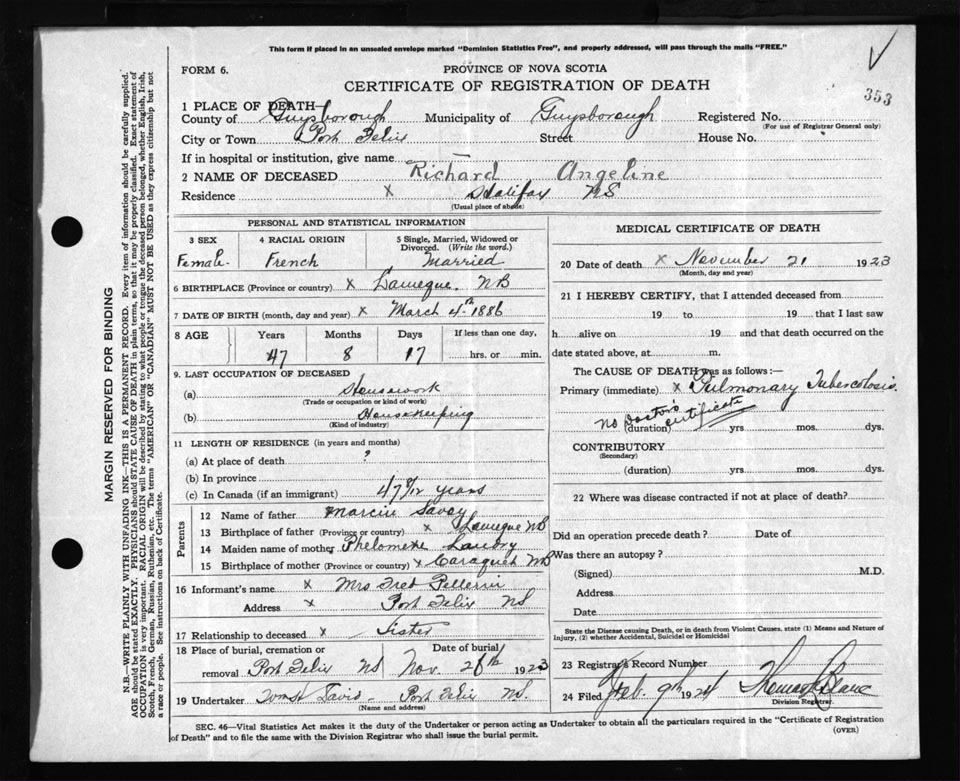 This form if placed in an unsealed envelope marked "Dominion Statistics Free", and properly addressed, will pass through the mails "FREE."
FORM 6.
PROVINCE OF NOVA SCOTIA
CERTIFICATE OF REGISTRATION OF DEATH
353
1 PLACE OF DEATH—
County of Guysborough Municipality of Guysborough Registered No.
(For use of Registrar General only)
City or Town Port Felix Street House No.
If in hospital or institution, give name —
2 NAME OF DECEASED Richard Angeline
Residence x Halifax NS
(Usual place of abode)
PERSONAL AND STATISTICAL INFORMATION
3 SEX 4 RACIAL ORIGIN 5 Single, Married, Widowed or Divorced. (Write the word.)
Female. French Married
6 BIRTHPLACE (Province or country) x Lameque NB
7 DATE OF BIRTH (month, day and year) x March 4th 1886
8 AGE Years Months Days If less than one day,
47 8 17 hrs. or min.
9. LAST OCCUPATION OF DECEASED
(a) Housework
(Trade or occupation or kind of work)
(b) Housekeeping
(Kind of industry)
11 LENGTH OF RESIDENCE (in years and months)
(a) At place of death ?
(b) In province
(c) In Canada (if an immigrant) 47 8/12 years
Parents
12 Name of father Savoy
13 Birthplace of father (Province or country) x Lameque NB
14 Maiden name of mother Landry
15 Birthplace of mother (Province or country) x Caraquet NB
16 Informant's name x Mrs Fred Pellerin
Address x Port Felix NS
17 Relationship to deceased x Sister
18 Place of burial, cremation or Date of burial
removal Port Felix NS Nov. 1923
19 Undertaker David Port Felix NS.
(Name and address)
MEDICAL CERTIFICATE OF DEATH
20 Date of death x November 21 1923
(Month, day and year)
21 I HEREBY CERTIFY, that I attended deceased from
19 to 19 that I last saw
h alive on 19 and that death occurred on the
date stated above, at m.
The CAUSE OF DEATH was as follows:—
Primary (immediate) x Pulmonary Tuberculosis.
no Doctor's certificate
(duration) yrs mos. dys.
CONTRIBUTORY
(Secondary)
(duration) yrs. mos. dys.
22 Where was disease contracted if not at place of death?
Did an operation precede death? Date of
Was there an autopsy?
(Signed) M.D.
Address
Date
State the Disease causing Death, or in death from Violent Causes, state (1) Means and Nature of
Injury, (2) whether Accidental, Suicidal or Homicidal
23 Registrar's Record Number
24 Filed Feb. 9th 1924 Thomas LeBlanc
Division Registrar.
SEC. 46—Vital Statistics Act makes it the duty of the Undertaker or person acting as Undertaker to obtain all the particulars required in the "Certificate of Registration
of Death" and to file the same with the Division Registrar who shall issue the burial permit.
(OVER)
MARGIN RESERVED FOR BINDING
N.B.—WRITE PLAINLY WITH UNFADING INK—THIS IS A PERMANENT RECORD. Every item of information should be carefully supplied.
AGE should be stated EXACTLY. PHYSICIANS should STATE CAUSE OF DEATH in plain terms, so that it may be properly classified. Exact statement of
OCCUPATION is very important. RACIAL ORIGIN will be described by stating to what people or tongue the deceased person belonged, whether English, Irish,
Scotch, French, German, Russian, Ruthenian, etc. The terms "AMERICAN" OR "CANADIAN" MUST NOT BE USED as they express citizenship but not
a race or people. See instructions on back of Certificate.